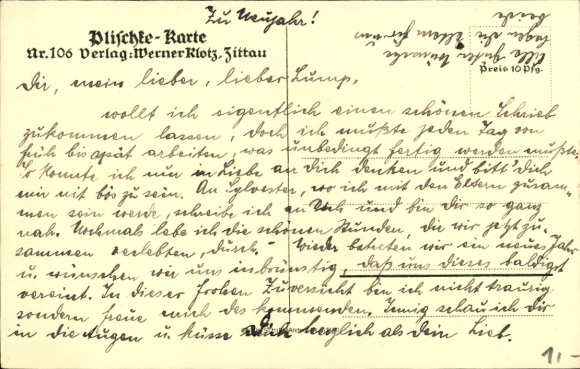 Zu Neujahr!
Plischke-Karte
Nr. 106 Verlag: Werner Klotz, Zittau
Preis 10 Pfg.
Alle guten Wünsche
die Eltern
beide
Dir, mein lieber, lieber Lump,
wollt ich eigentlich einen schönen Schrieb
zukommen lassen, doch ich mußte jeden Tag von
früh bis spät arbeiten, was unbedingt fertig werden mußte.
So konnte ich nur in Liebe an Dich denken und bitt' dich
mir nit bös zu sein. An Sylvester, wo ich mit den Eltern zusam-
men sein werde, schreibe ich an Dich und bin dir so ganz
nah. Nochmals lebe ich die schönen Stunden, die wir jetzt zu-
sammen verlebten, durch. Wieder betreten wir ein neues Jahr
u. wünschen wir uns inbrünstig, daß uns dieses baldigst
vereint. In dieser frohen Zuversicht bin ich nicht traurig
sondern freue mich des kommenden. Innig schau ich dir
in die Augen u. küsse dich herzlich als dein Lieb.
1,-